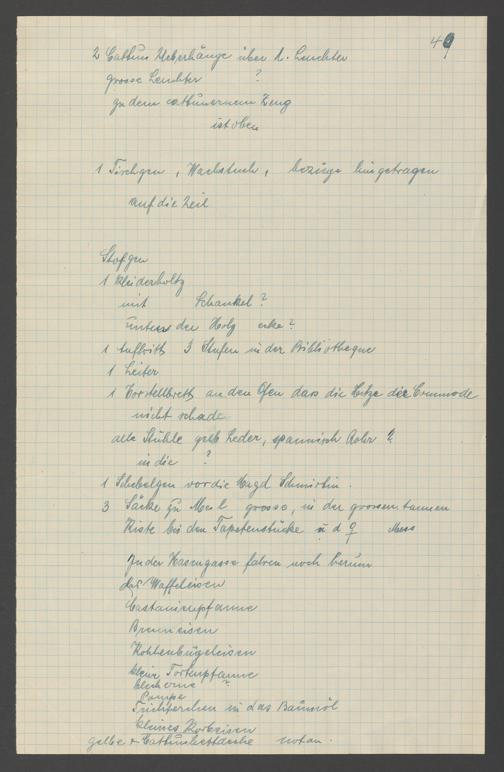 49
2 Cattun Ueberhänge über d. Leuchter
grosse Leuchter ?
zu dem cattunernem Zeug
ist oben
1 Tischgen, Wachstuch, bezüge hingetragen
auf die Zeil
Stofgen
1 Kleiderholtz
mit Schankel ?
unter der Holz enke ?
1 Auftritt 3 Stufen in der Bibliotheque
1 Leiter
1 Vorstellbrett an den Ofen dass die Hitze der Commode
nicht schade
alle Stühle gelb Leder, spannisch Rohr ?
in die ?
1 Schebelgen vor die Magd
3 Säcke zu Mehl grosse, in der grossen tannen
Kiste bei den Tapetenstücke u d
In der Hasengasse fahren noch herum
das Waffeleisen
Castanienpfanne
Brenneisen
Kohlenbügeleisen
kleine Tortenpfanne
blecherne ?
Lampe
Trichterchen in das Baumöl
kleines
gelbe + Cattunbettdecke